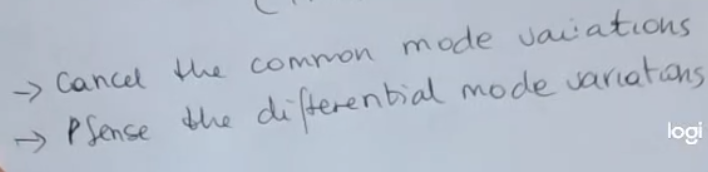 → Cancel the common mode vaiations
→ PSense the differential mode variations
logi